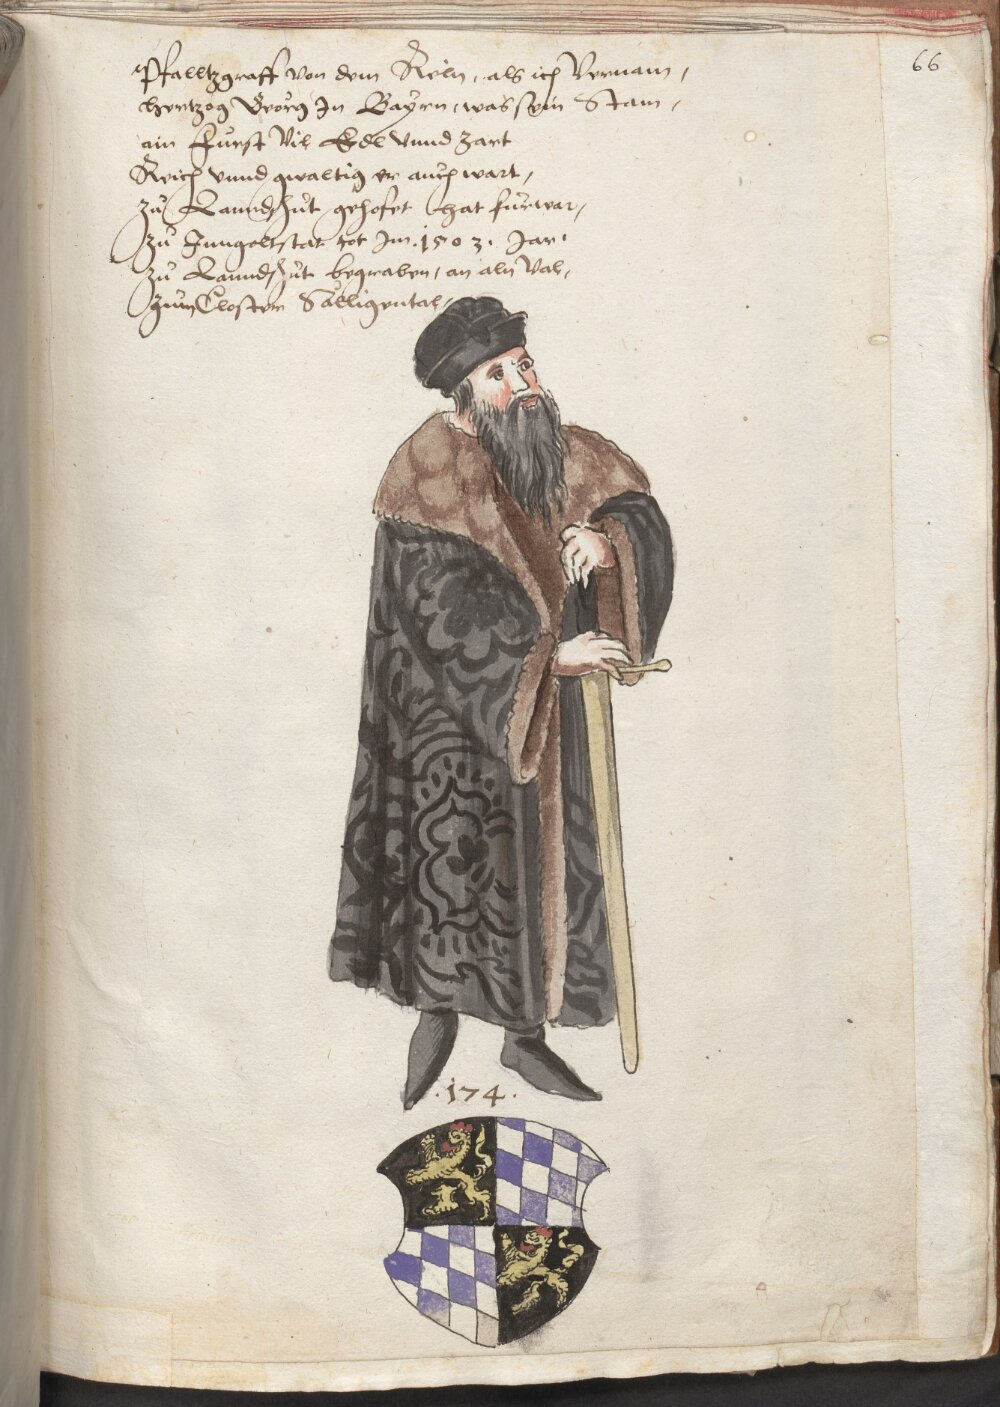 66
Pfalltzgraff von dem Rein, als ich vernam,
hertzog Georg In Bayrn, was sein Stam,
ain Furst vil Edl vnnd zart
Reich vnnd gwaltig er auch wart,
zu Lanndshut gehofet hat furwar,
zu Inngolstat tot Im .1503. Jar.
zu Lanndshut begraben, an aln val,
zum Closter Sälligental,
.174.